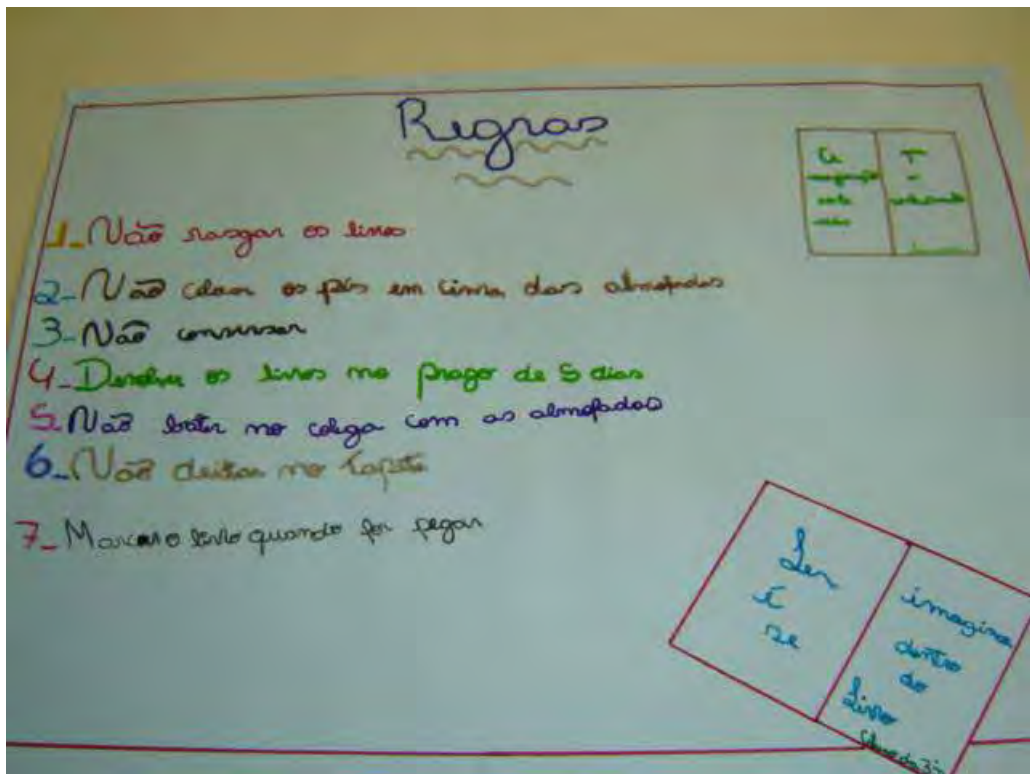 Regras
1_Não rasgar os livros
2_Não colocar os pés em cima das almofadas
3_Não conversar
4_Devolver os livros no prazo de 5 dias
5_Não bater no colega com as almofadas
6_Não deitar no tapete
7_Marcar o livro quando for pegar
Ler
é
se
imaginar
dentro
do
Livro